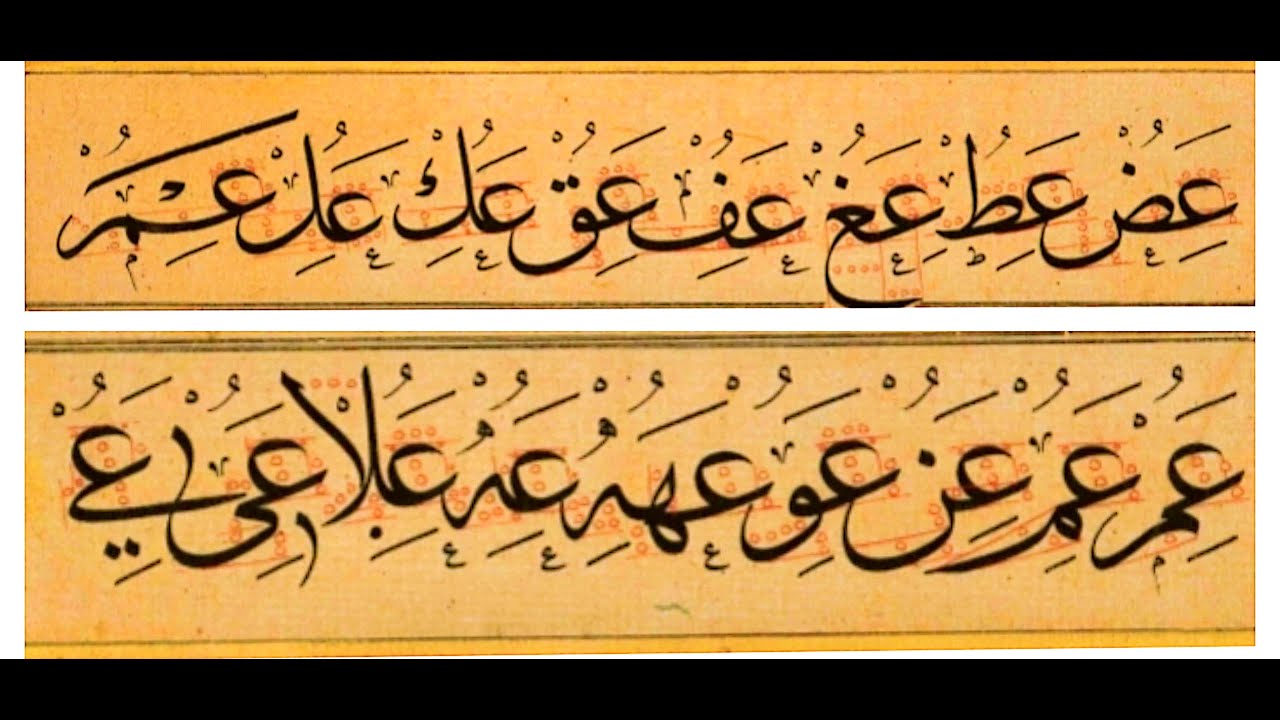 عض عط عغ عف عق عك عل عكم
عم عم عن عو عهه عه علا عى عے